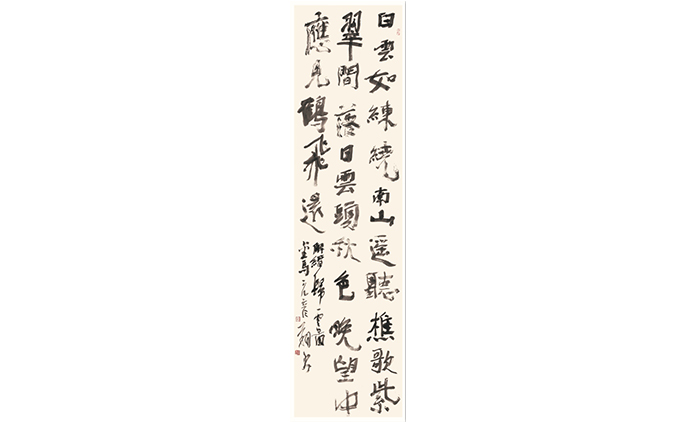 白雲如練繞南山遥聽樵歌紫
翠間落日雲頭秋色晚望中
應見鶴飛還
解縉歸雲圖